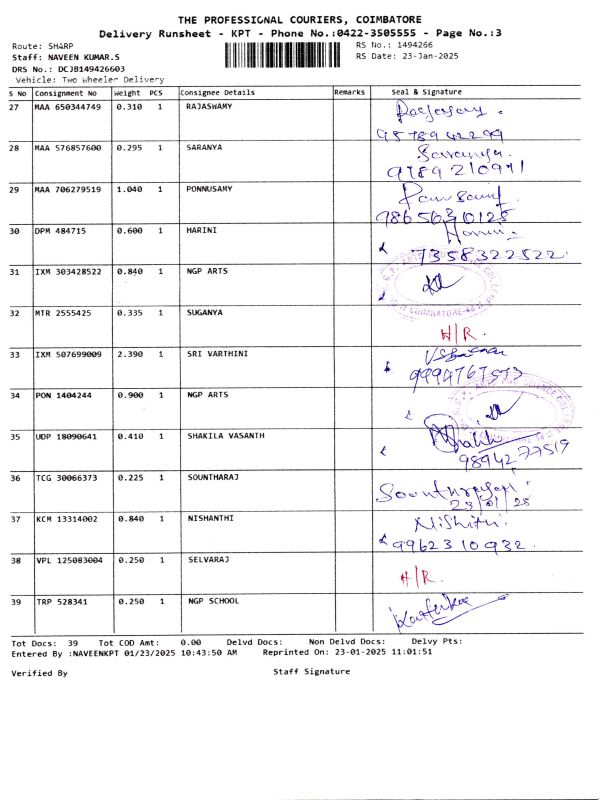 THE PROFESSIONAL COURIERS, COIMBATORE
Delivery Runsheet - KPT - Phone No.:0422-3505555 - Page No.:3
Route: SHARP
RS No.: 1494266
Staff: NAVEEN KUMAR.S
RS Date: 23-Jan-2025
DRS No.: DCJB149426603
Vehicle: Two Wheeler Delivery
S No Consignment No Weight PCS Consignee Details Remarks Seal & Signature
27 MAA 650344749 0.310 1 RAJASWAMY
28 MAA 576857600 0.295 1 SARANYA Saranya.
9789210971
29 MAA 706279519 1.040 1 PONNUSAMY
9865630125
30 DPM 484715 0.600 1 HARINI Harini
7358322522
31 IXM 303428522 0.840 1 NGP ARTS
COIMBATORE-48
32 MTR 2555425 0.335 1 SUGANYA
H/R.
33 IXM 507699009 2.390 1 SRI VARTHINI
9994767573
34 PON 1404244 0.900 1 NGP ARTS
35 UDP 18090641 0.410 1 SHAKILA VASANTH
9894277519
36 TCG 30066373 0.225 1 SOUNTHARAJ
23/01/25
37 KCM 13314002 0.840 1 NISHANTHI
9962310932.
38 VPL 125083004 0.250 1 SELVARAJ
H/R.
39 TRP 528341 0.250 1 NGP SCHOOL
Tot Docs: 39 Tot COD Amt: 0.00 Delvd Docs: Non Delvd Docs: Delvy Pts:
Entered By :NAVEENKPT 01/23/2025 10:43:50 AM Reprinted On: 23-01-2025 11:01:51
Verified By Staff Signature